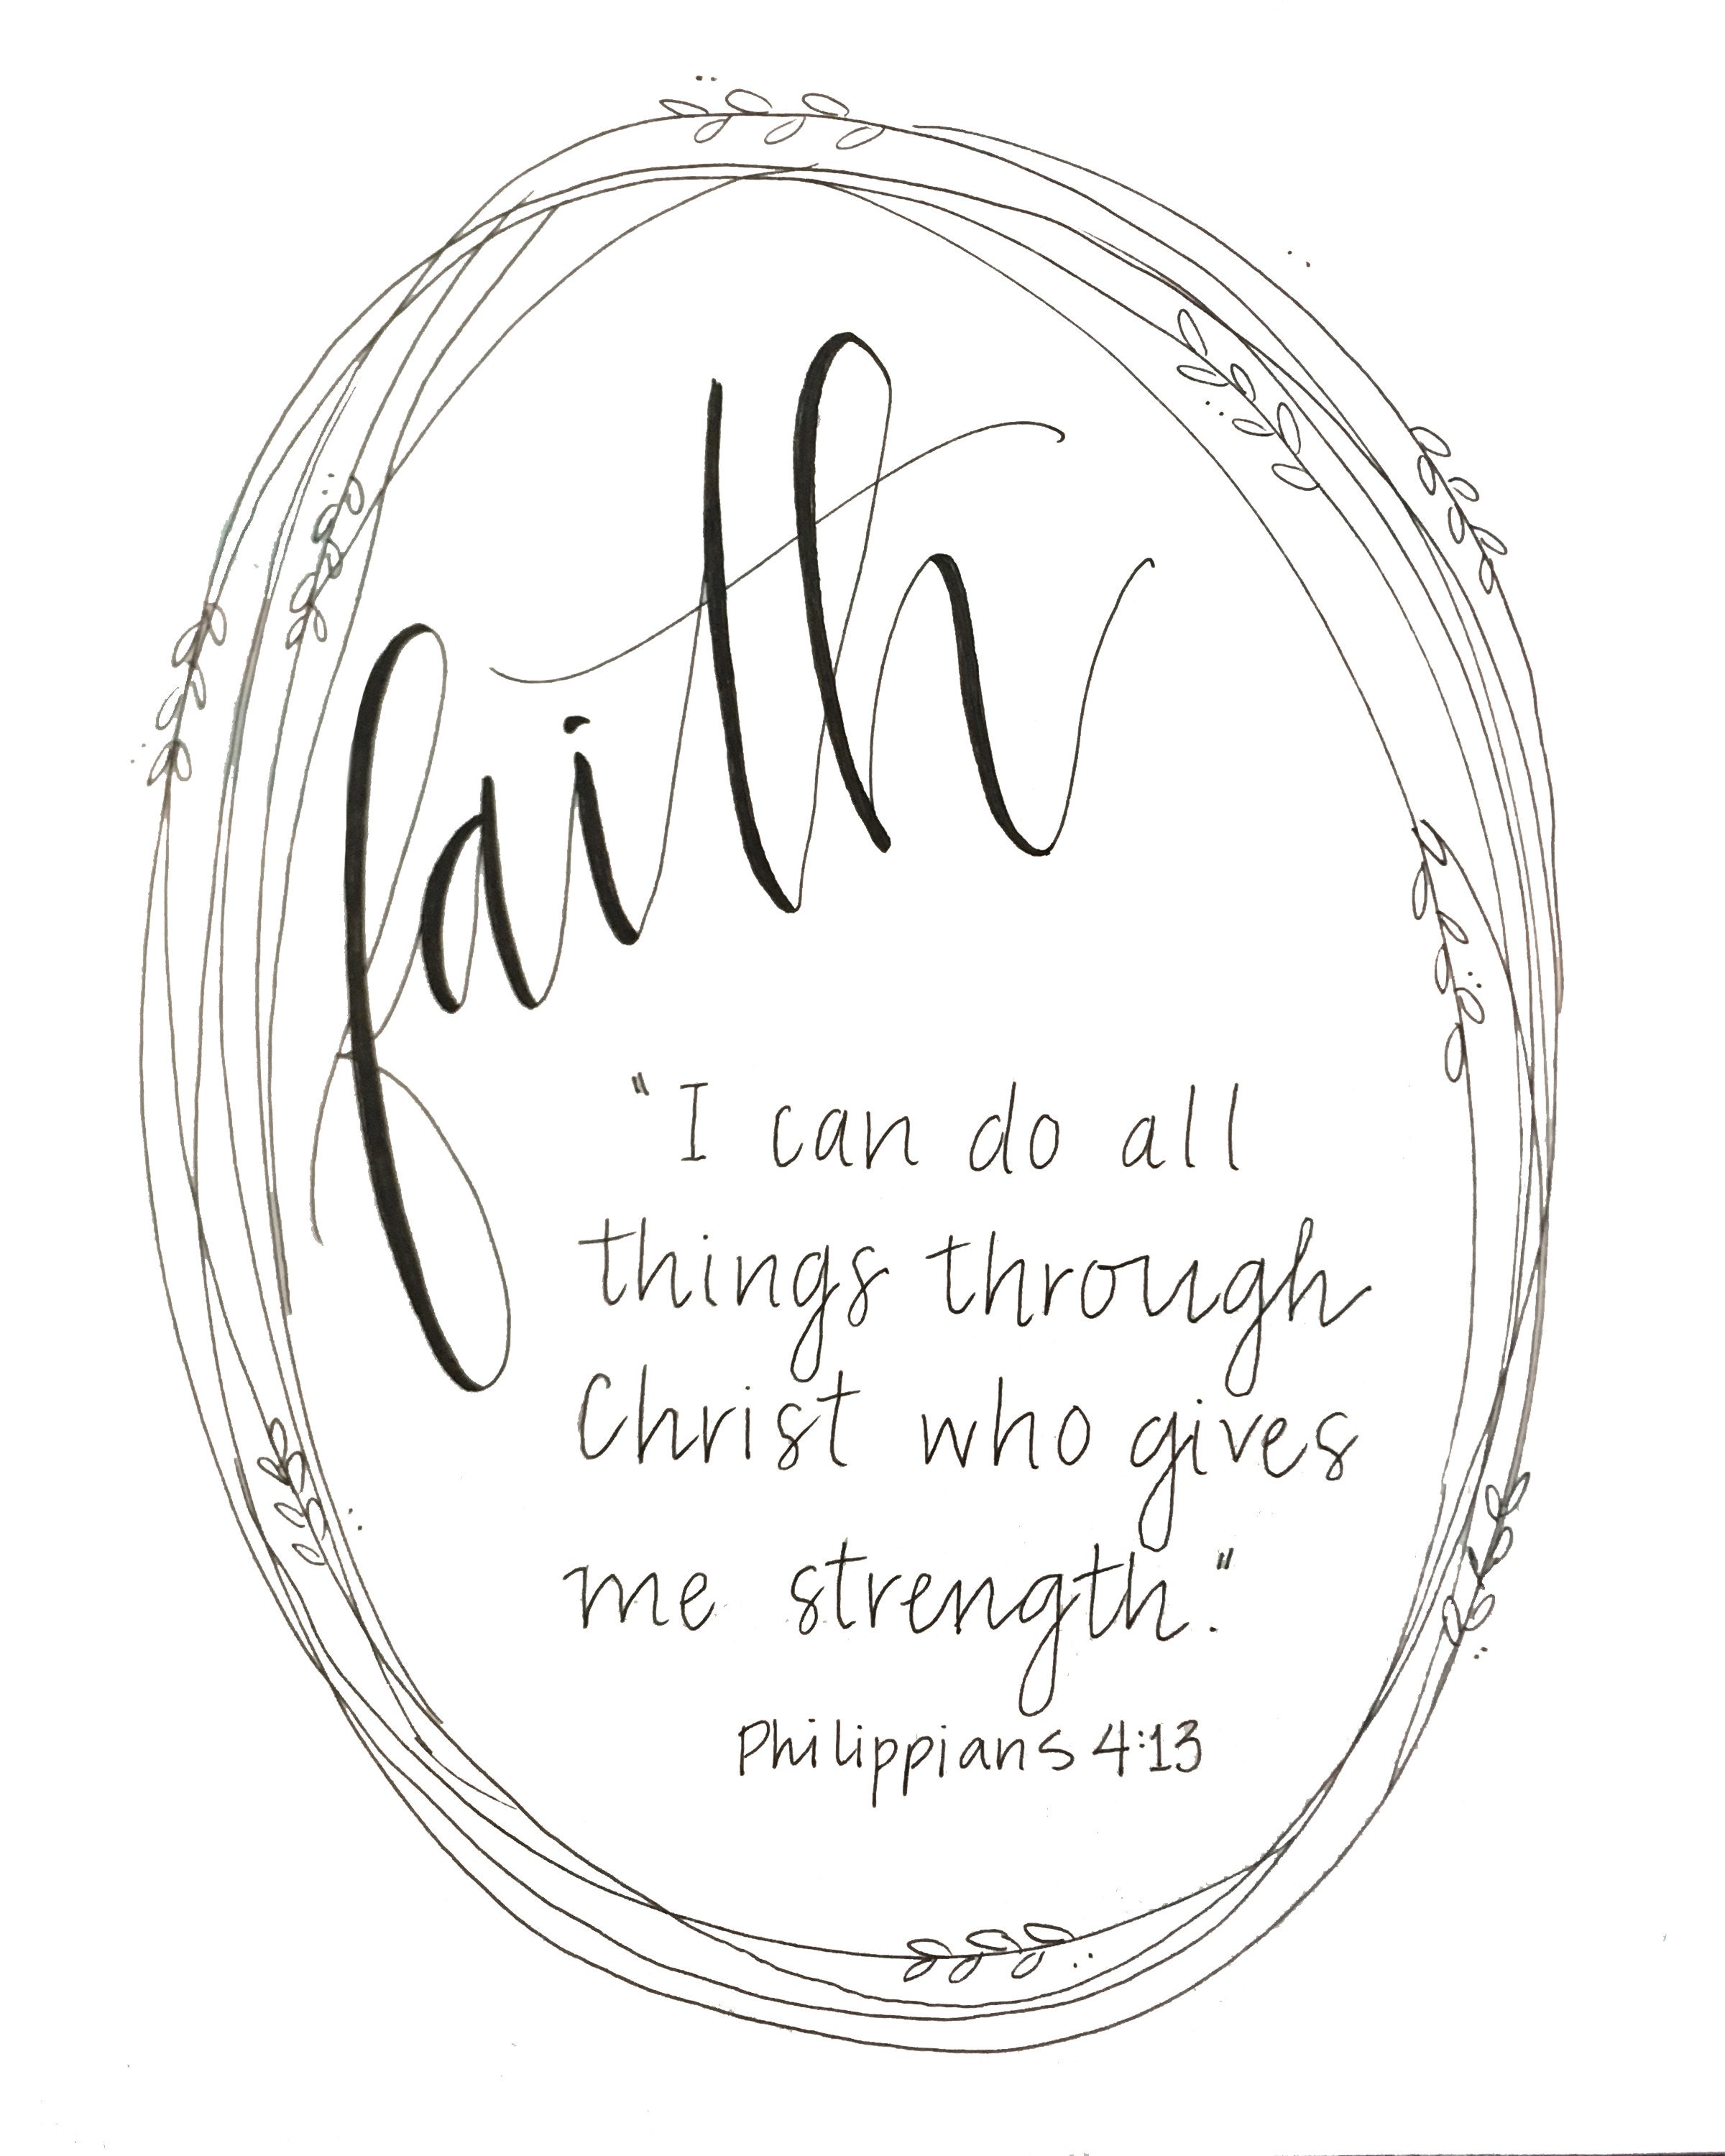 faith
"I can do all
things through
Christ who gives
me strength."
Philippians 4:13